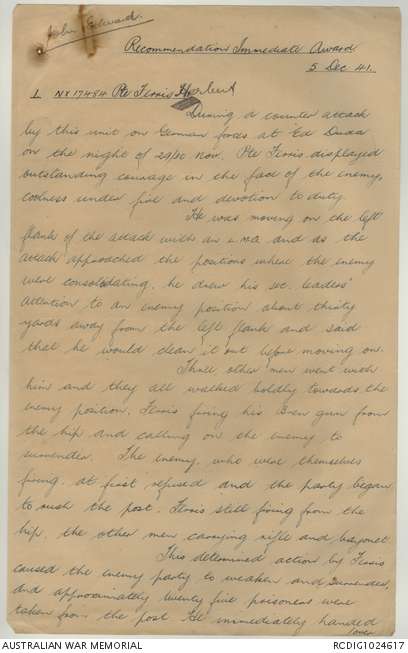 John Edward.
Recommendation Immediate Award
5 Dec 41.
1 NX17484 Pte Ferris Herbert
During a counter attack
by this unit on German forces at Ed Duda
on the night of 29/30 Nov. Pte Ferris displayed
outstanding courage in the face of the enemy,
coolness under fire and devotion to duty.
He was moving on the left
flank of the attack with an L.MG and as the
attack approached the positions where the enemy
were consolidating, he drew his sec. leaders'
attention to an enemy position about thirty
yards away from the left flank and said
that he would clean it out before moving on.
Three other men went with
him and they all walked boldly towards the
enemy position, Ferris firing his Bren gun from
the hip and calling on the enemy to
surrender. The enemy, who were themselves
firing, at first refused and the party began
to rush the post. Ferris still firing from the
hip, the other men carrying rifle and bayonet
This determined action by Ferris
caused the enemy party to weaken and surrender,
and approximately twenty five prisoners were
taken from the post. He immediately handed
/over
AUSTRALIAN WAR MEMORIAL
RCDIG1024617